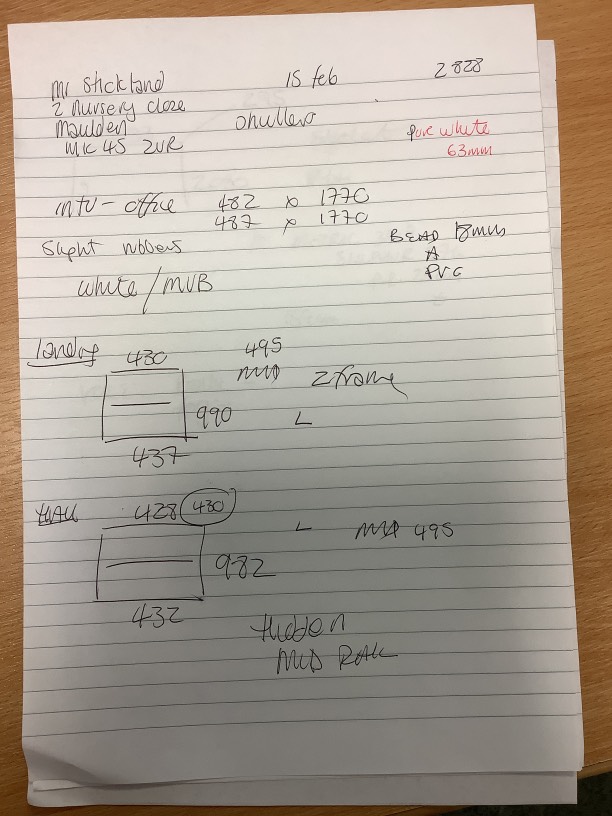 Mr Stickland 15 feb 2828
2 Nursery close
Maulden
MK 45 2UR
pure white
63mm
office 482 x 1770
487 x 1770
BEAD 18mm
A
PVC
white / MVB
Landing 430 495
MID Z frame
990 L
437
HALL 428 430
L MID 495
982
432
Hidden
MID RAIL